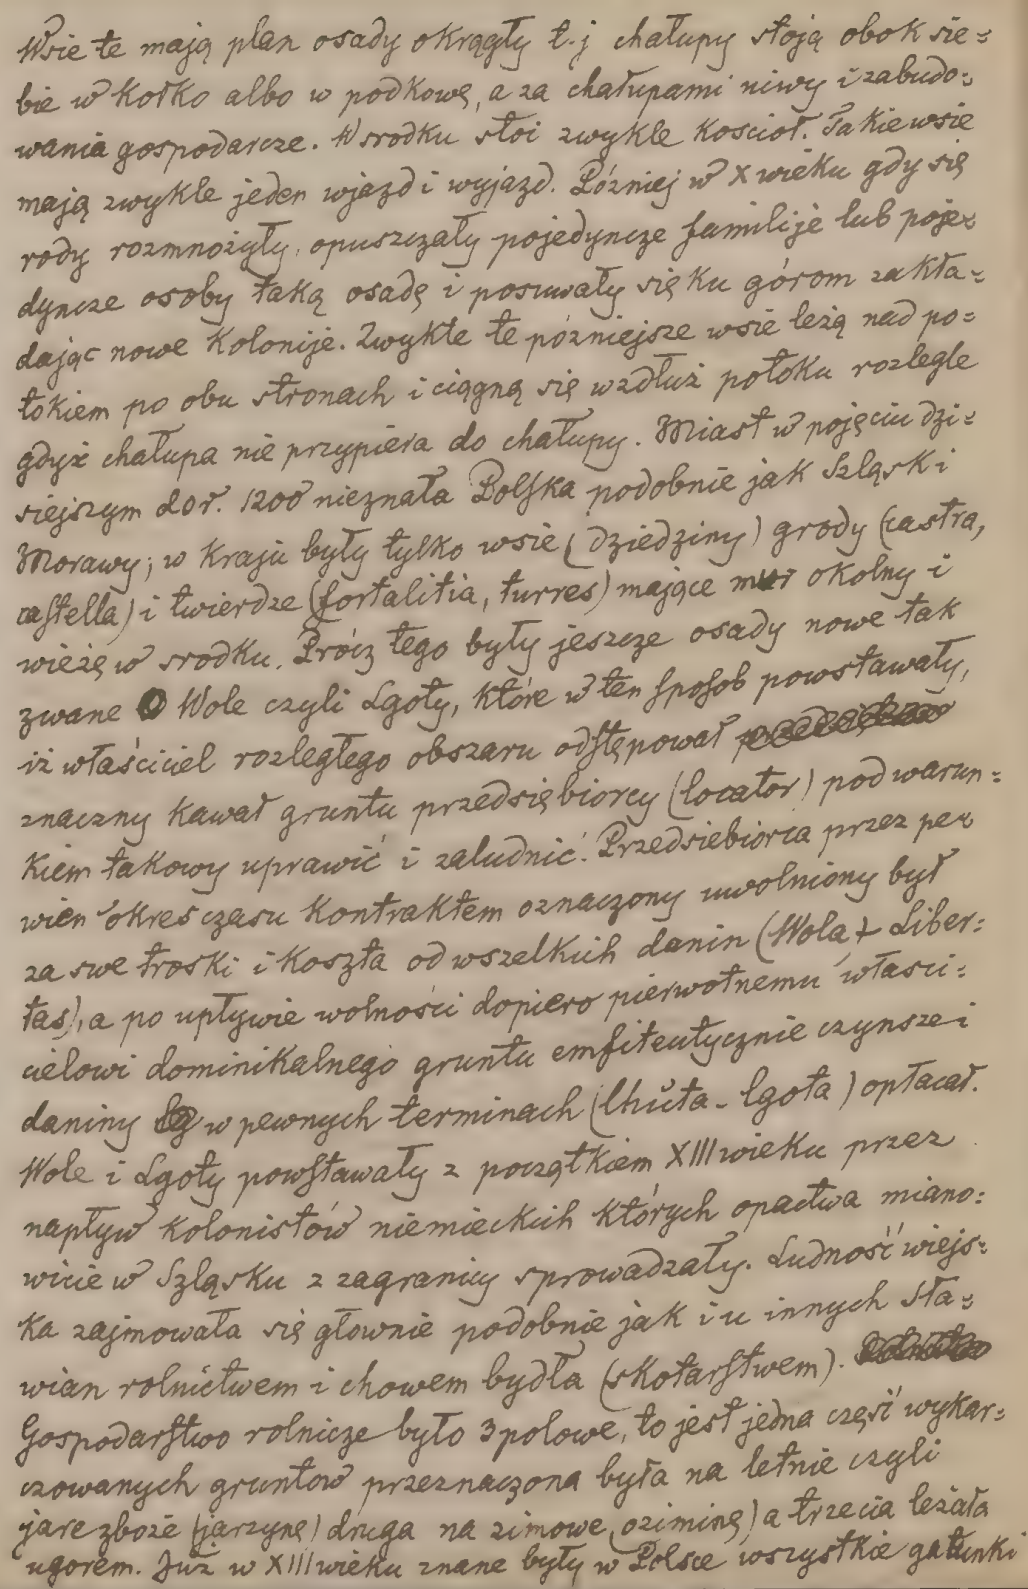 Wsie te mają plan osady okrągły t.j chałupy stoją obok sie=
bie w kołko albo w podkowę, a za chałupami niwy i zabudo=
wania gospodarcze. W srodku stoi zwykle kościoł. Takie wsie
mają zwykle jeden wjazd i wyjazd. Później w X wieku gdy się
rody rozmnożyły, opuszczały pojedyncze familije lub poje=
dyncze osoby taką osadę i posuwały się ku górom zakła=
dając nowe kolonije. Zwykle te późniejsze wsie leżą nad po=
tokiem po obu stronach i ciągną się wzdłuż potoku rozlegle
gdyż chałupa nie przypiera do chałupy. Miast w pojęciu dzi=
siejszym do r. 1200 nieznała Polska podobnie jak Szląsk i
Morawy; w kraju były tylko wsie (dziedziny) grody (castra,
castella) i twierdze (fortalitia, turres) mające mur okolny i
wieżę w srodku. Prócz tego były jeszcze osady nowe tak
zwane Wole czyli Lgoty, które w ten sposob powstawały,
iż właściciel rozległego obszaru odstępował
znaczny kawał gruntu przedsiębiorcy (locator) pod warun=
kiem takowy uprawić i zaludnić. Przedsiebiorca przez pe=
wien okres czasu kontraktem oznaczony uwolniony był
za swe troski i koszta od wszelkich danin (Wola + Liber=
tas), a po upływie wolności dopiero pierwotnemu własci=
cielowi dominikalnego gruntu emfiteutycznie czynsze i
daniny w pewnych terminach (lhůta - lgota) opłacał.
Wole i Lgoty powstawały z początkiem XIII wieku przez
napływ kolonistów niemieckich których opactwa miano=
wicie w Szląsku z zagranicy sprowadzały. Ludność wiejs=
ka zajmowała się głownie podobnie jak i u innych Sła=
wian rolnictwem i chowem bydła (skotarstwem).
Gospodarstwo rolnicze było 3 polowe, to jest jedna część wykar=
czowanych gruntów przeznaczona była na letnie czyli
jare zboże (jarzynę) druga na zimowe (oziminę) a trzecia leżała
ugorem. Już w XIII wieku znane były w Polsce wszystkie gatunki